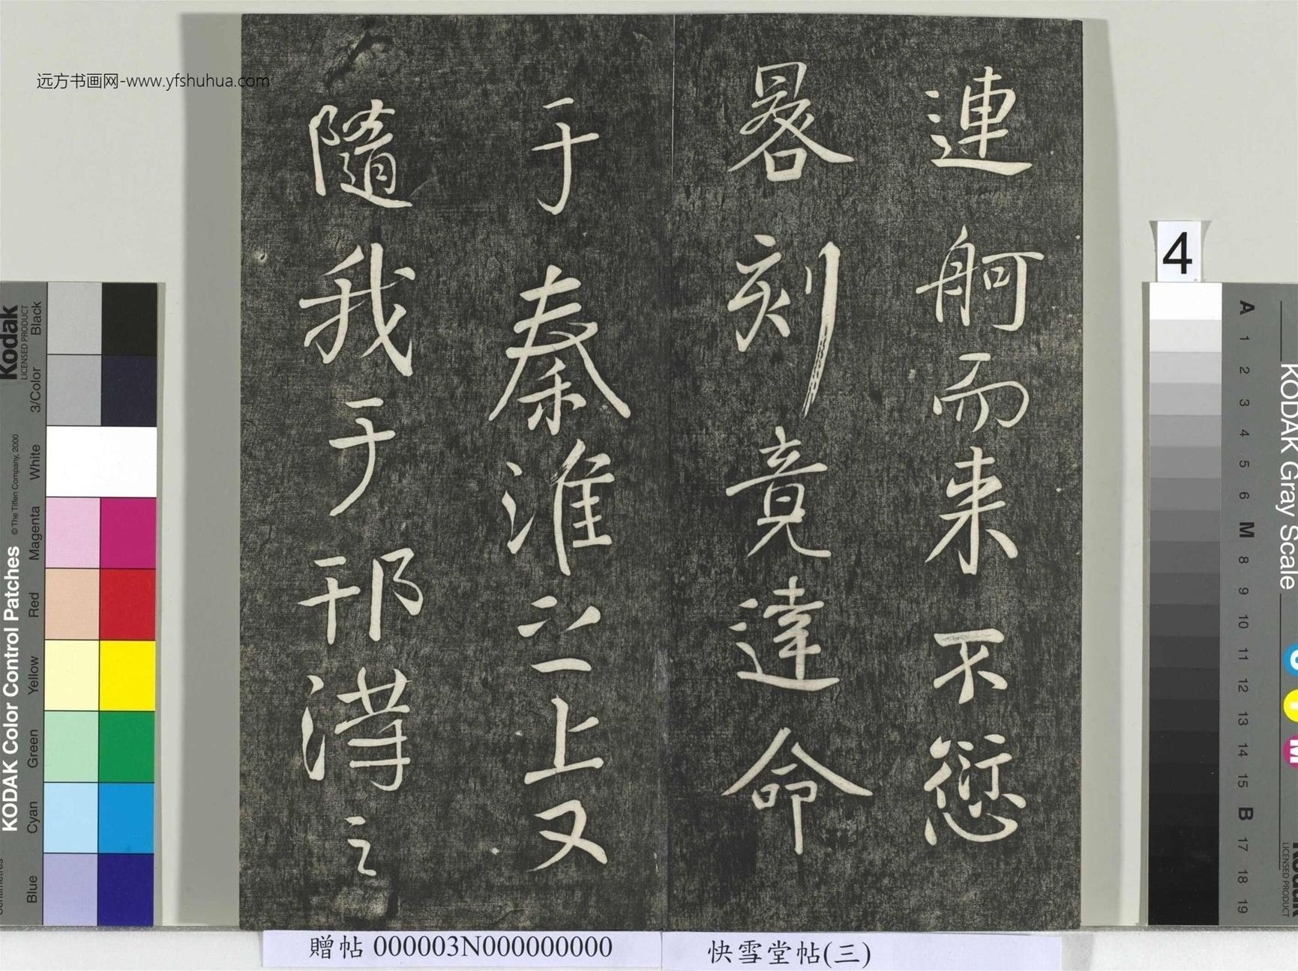 連舸而来不愆
晷刻竟達命
于秦淮之上又
隨我于邗溝之
远方书画网-www.yfshuhua.com
贈帖 000003N000000000
快雪堂帖(三)
Kodak
LICENSED PRODUCT
KODAK Color Control Patches
© The Tiffen Company, 2000
Blue
Cyan
Green
Yellow
Red
Magenta
White
3/Color
Black
4
KODAK Gray Scale
A 1 2 3 4 5 6 M 8 9 10 11 12 13 14 15 B 17 18 19